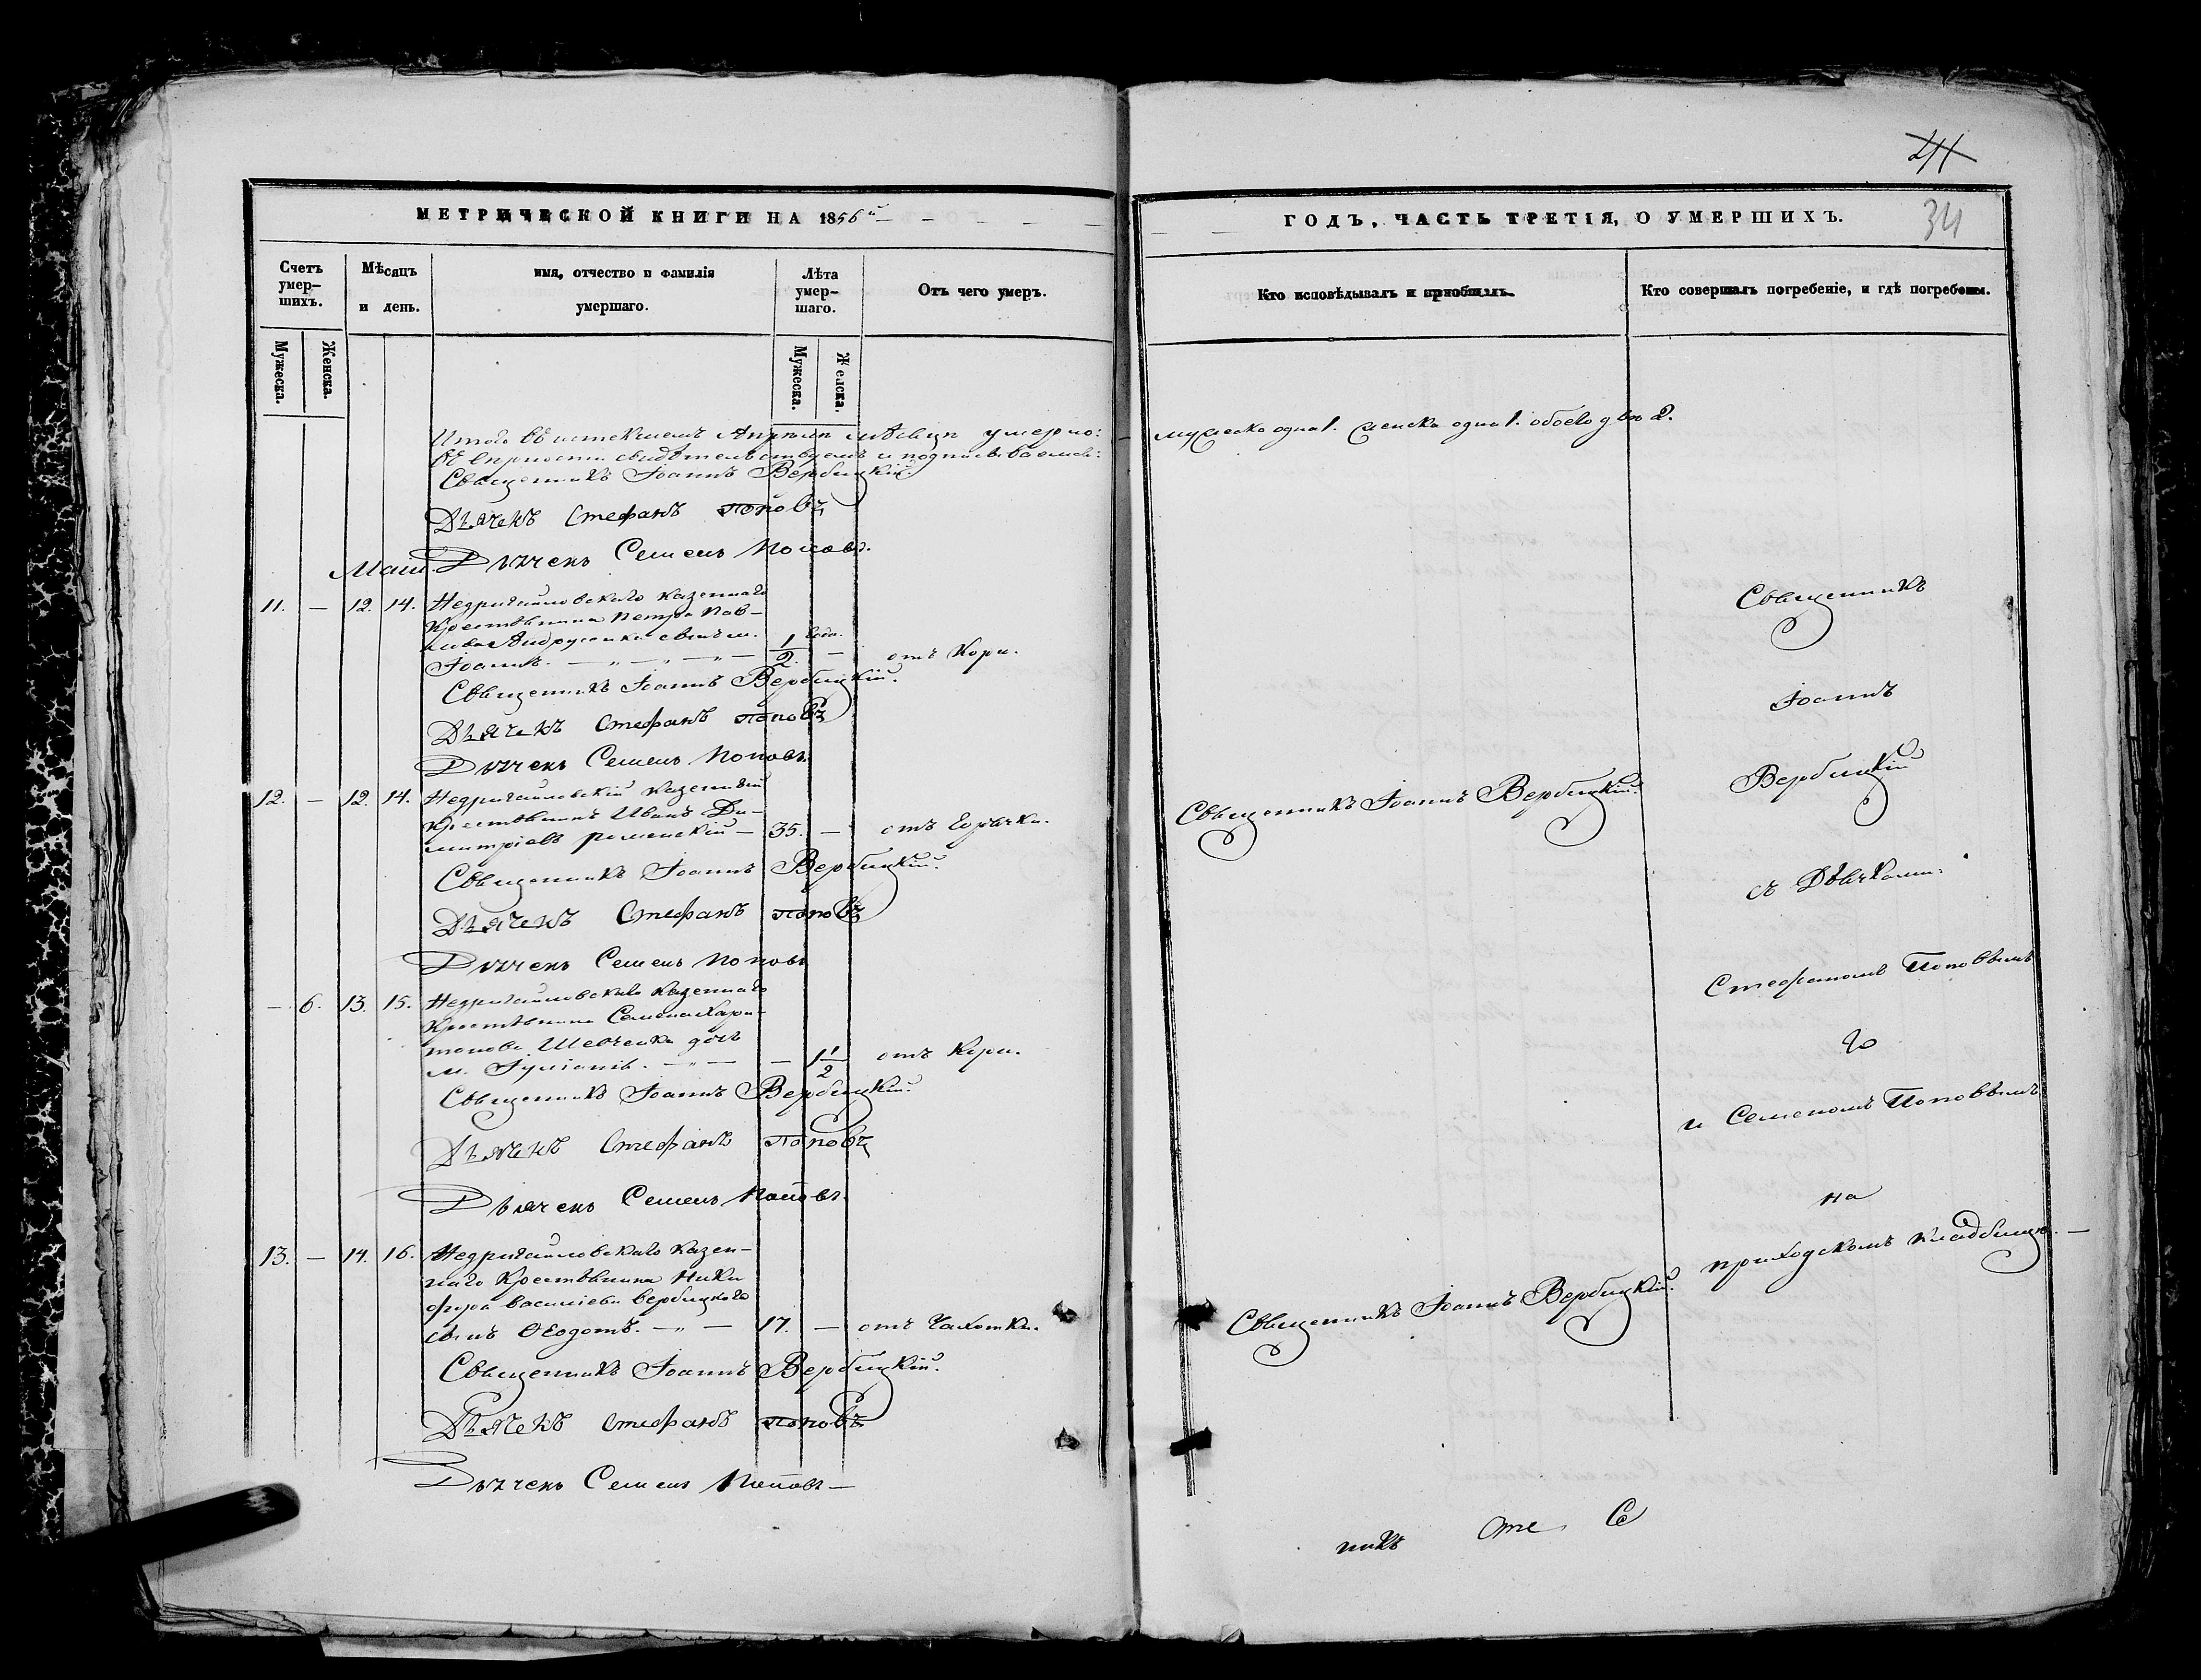 МЕТРИЧЕСКОЙ КНИГИ НА 1856й
Счетъ умер-
шихъ.
Мѣсяцъ
и день.
имя, отчество и фамилія
умершаго.
Лѣта
умер-
шаго.
Отъ чего умеръ.
Мужеска.
Женска.
Мужеска.
Женска.
Итого въ истекшемъ Апрѣлѣ мѣсяцѣ умерло:
въ верности свидѣтельствуемъ и подписываемся:
Священникъ Іоаннъ Вербицкій.
Дьячекъ Стефанъ Поповъ
Дьячекъ Семенъ Поповъ.
Маій.
11. — 12. 14. Недригайловскаго казеннаго
крестьянина Петра Пав-
лова Андрусенка сынъ м.
Іоаннъ. — „ — „ — „ — 1/2. года. — отъ Кори.
Священникъ Іоаннъ Вербицкій.
Дьячекъ Стефанъ Поповъ
Дьячекъ Семенъ Поповъ.
12. — 12. 14. Недригайловскій казенный
крестьянинъ Иванъ Ди-
митріевъ Роменскій — 35. — отъ Горячки.
Священникъ Іоаннъ Вербицкій.
Дьячекъ Стефанъ Поповъ
Дьячекъ Семенъ Поповъ
— 6. 13. 15. Недригайловскаго казеннаго
крестьянина Семена Хари-
тонова Шевченка дочь
м. Іуліанія. — „ — — 1 1/2 отъ Кори.
Священникъ Іоаннъ Вербицкій.
Дьячекъ Стефанъ Поповъ
Дьячекъ Семенъ Поповъ.
13. — 14. 16. Недригайловскаго казен-
наго крестьянина Ники
фора Васильева Вербицкого
сынъ Ѳеодотъ. — „ — 17. — отъ Чахотки.
Священникъ Іоаннъ Вербицкій.
Дьячекъ Стефанъ Поповъ
Дьячекъ Семенъ Поповъ —
34
ГОДЪ, ЧАСТЬ ТРЕТІЯ, О УМЕРШИХЪ.
Кто исповѣдывалъ и пріобщалъ.
Кто совершалъ погребеніе, и гдѣ погребены.
мужеска одна 1. женска одна 1. обоего двѣ 2.
Священникъ
Іоаннъ
Вербицкій
Священникъ Іоаннъ Вербицкій.
съ Дьячками:
Стефаномъ Поповымъ
и Семеномъ Поповымъ
на
приходскомъ кладбищѣ. —
Священникъ Іоаннъ Вербицкій.
никъ Сте Се